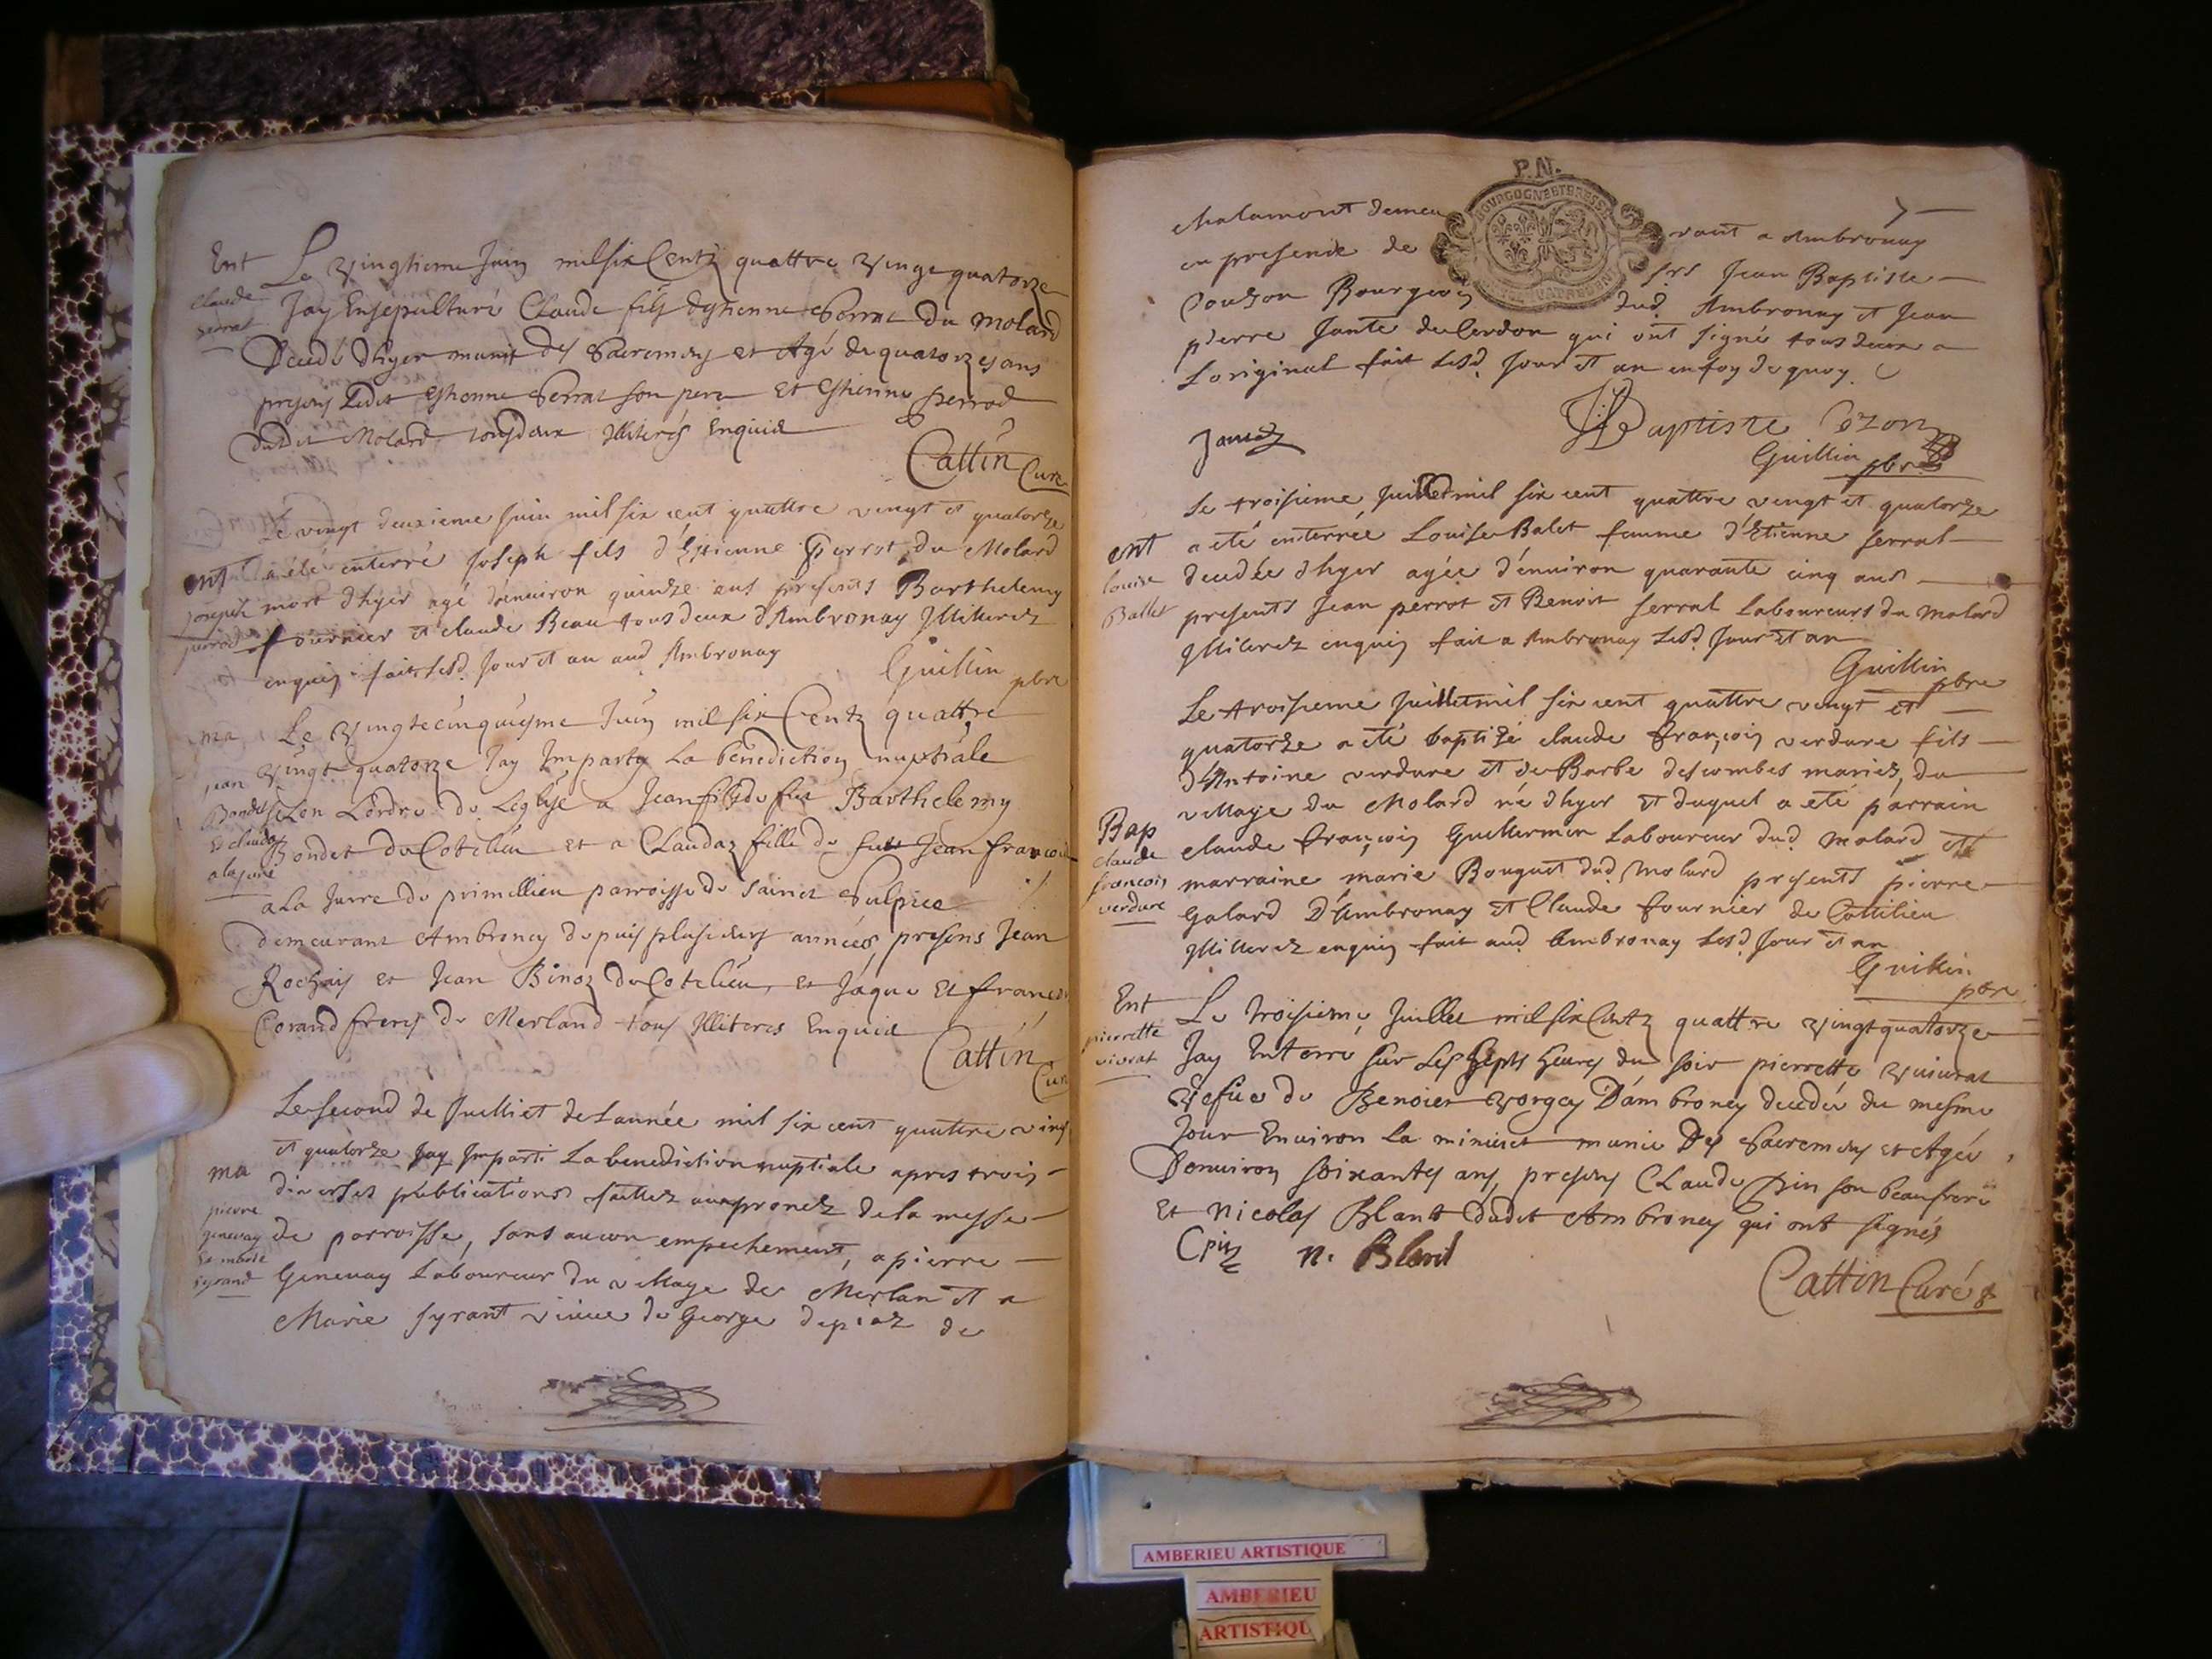 Ent
Claude
serrat
Le vingtieme Juin mil six Centz quattre vingt quatorze
Jay Ensepulturé Claude fils destienne Serrat du molard
Decedé dhyer munit des Sacremens et Agé de quatorzes ans
presens Ledit estienne Serrat son pere Et Estienne perrod
dudit Molard tous deux Illiterés Enquis
Cattin Curé
ent
joseph
perrod
Le vingt deuxieme juin mil six cent quattre vingt et quatorze
a eté enterré joseph fils d'Estienne perrot du Molard
mort dhyer agé d'enuiron quinze ans presents Barthelemy
fournier et claude Beau tous deux d'Ambronay Illiterez
enquis fait lesd. jour et an aud Ambronay
Guillin pbre
ma
jean
Bondet
et claudaz
alajuire
Le vingtecinquiesme Juin mil six Centz quattre
vingt quatorze Jay Imparty La benediction nuptiale
selon Lordre de Leglise a Jean fils de fut Barthelemy
Bondet du Cotelieu et a Claudaz fille de fut Jean francois
a La Juire de primillieu parroisse de Sainct Sulpice
demeurant Ambroney depuis plusieurs années, presens Jean
Rochais et Jean Binoz du Cotelieu, et Jaque Et francois
Corand freres de Merland tous Illiteres Enquis
Cattin Curé
ma
pierre
genevay
et marie
syrand
Le second de Juilliet de Lannée mil six cent quattre vingt
et quatorze jay Imparti La benediction nuptiale apres trois
diverses publications faittez aux pronez de la messe
de parroisse, sans aucun empechement, a pierre
Genevay Laboureur du village de Merlan et a
Marie syrant vieue de George depiaz de
P.N.
BOURGOGNE ET BRESSE
7
chalamont demeurant a Ambronay
en presence de srs Jean Baptiste
Douzon Bourgeois dud Ambronay et Jean
pierre Jante de Cerdon qui ont signé tous deux a
Loriginal fait lesd. jour et an en foy de quoy
JBaptiste
Guillin pbre
ent
louise
Ballet
Le troisieme juillet mil six cent quattre vingt et quatorze
a eté enterrée Louise Balet femme d'Etienne serrat
decedée dhyer agée d'enuiron quarante cinq ans
presents Jean perrot et Benoit serrat Laboureurs du molard
Illiterez enquis fait a Ambronay Lesd. jour et an
Guillin pbre
Bap
claude
francois
verdure
Le troisieme juillet mil six cent quattre vingt et
quatorze a eté baptizé claude françois verdure fils
d'Antoine verdure et de Barbe descombes mariez, du
village du Molard né dhyer et duquel a eté parrain
claude françois Guillermin Laboureur dud. molard et
marraine marie Bouguet dud. molard presents pierre
Galard d'Ambronay et Claude fournier de Cottilieu
Illiterez enquis fait aud. Ambronay lesd. jour et an
Guillin
pbre
Ent
pierrette
vivrat
Le troisieme Juillet mil six Centz quattre vingt quatorze
Jay Enterré sur Les septs heures du soir pierrette vivurat
vefue de Benoict vorgey Dambroney decedée du mesme
Jour Enuiron la minuict munie Des Sacremens et Agée
Denuiron soixantes ans, presens Claude pin son beaufrere
Et nicolas Blant dudit Ambroney qui ont signés
Cpin n. Blant
Cattin Curé
AMBERIEU ARTISTIQUE
AMBERIEU
ARTISTIQU